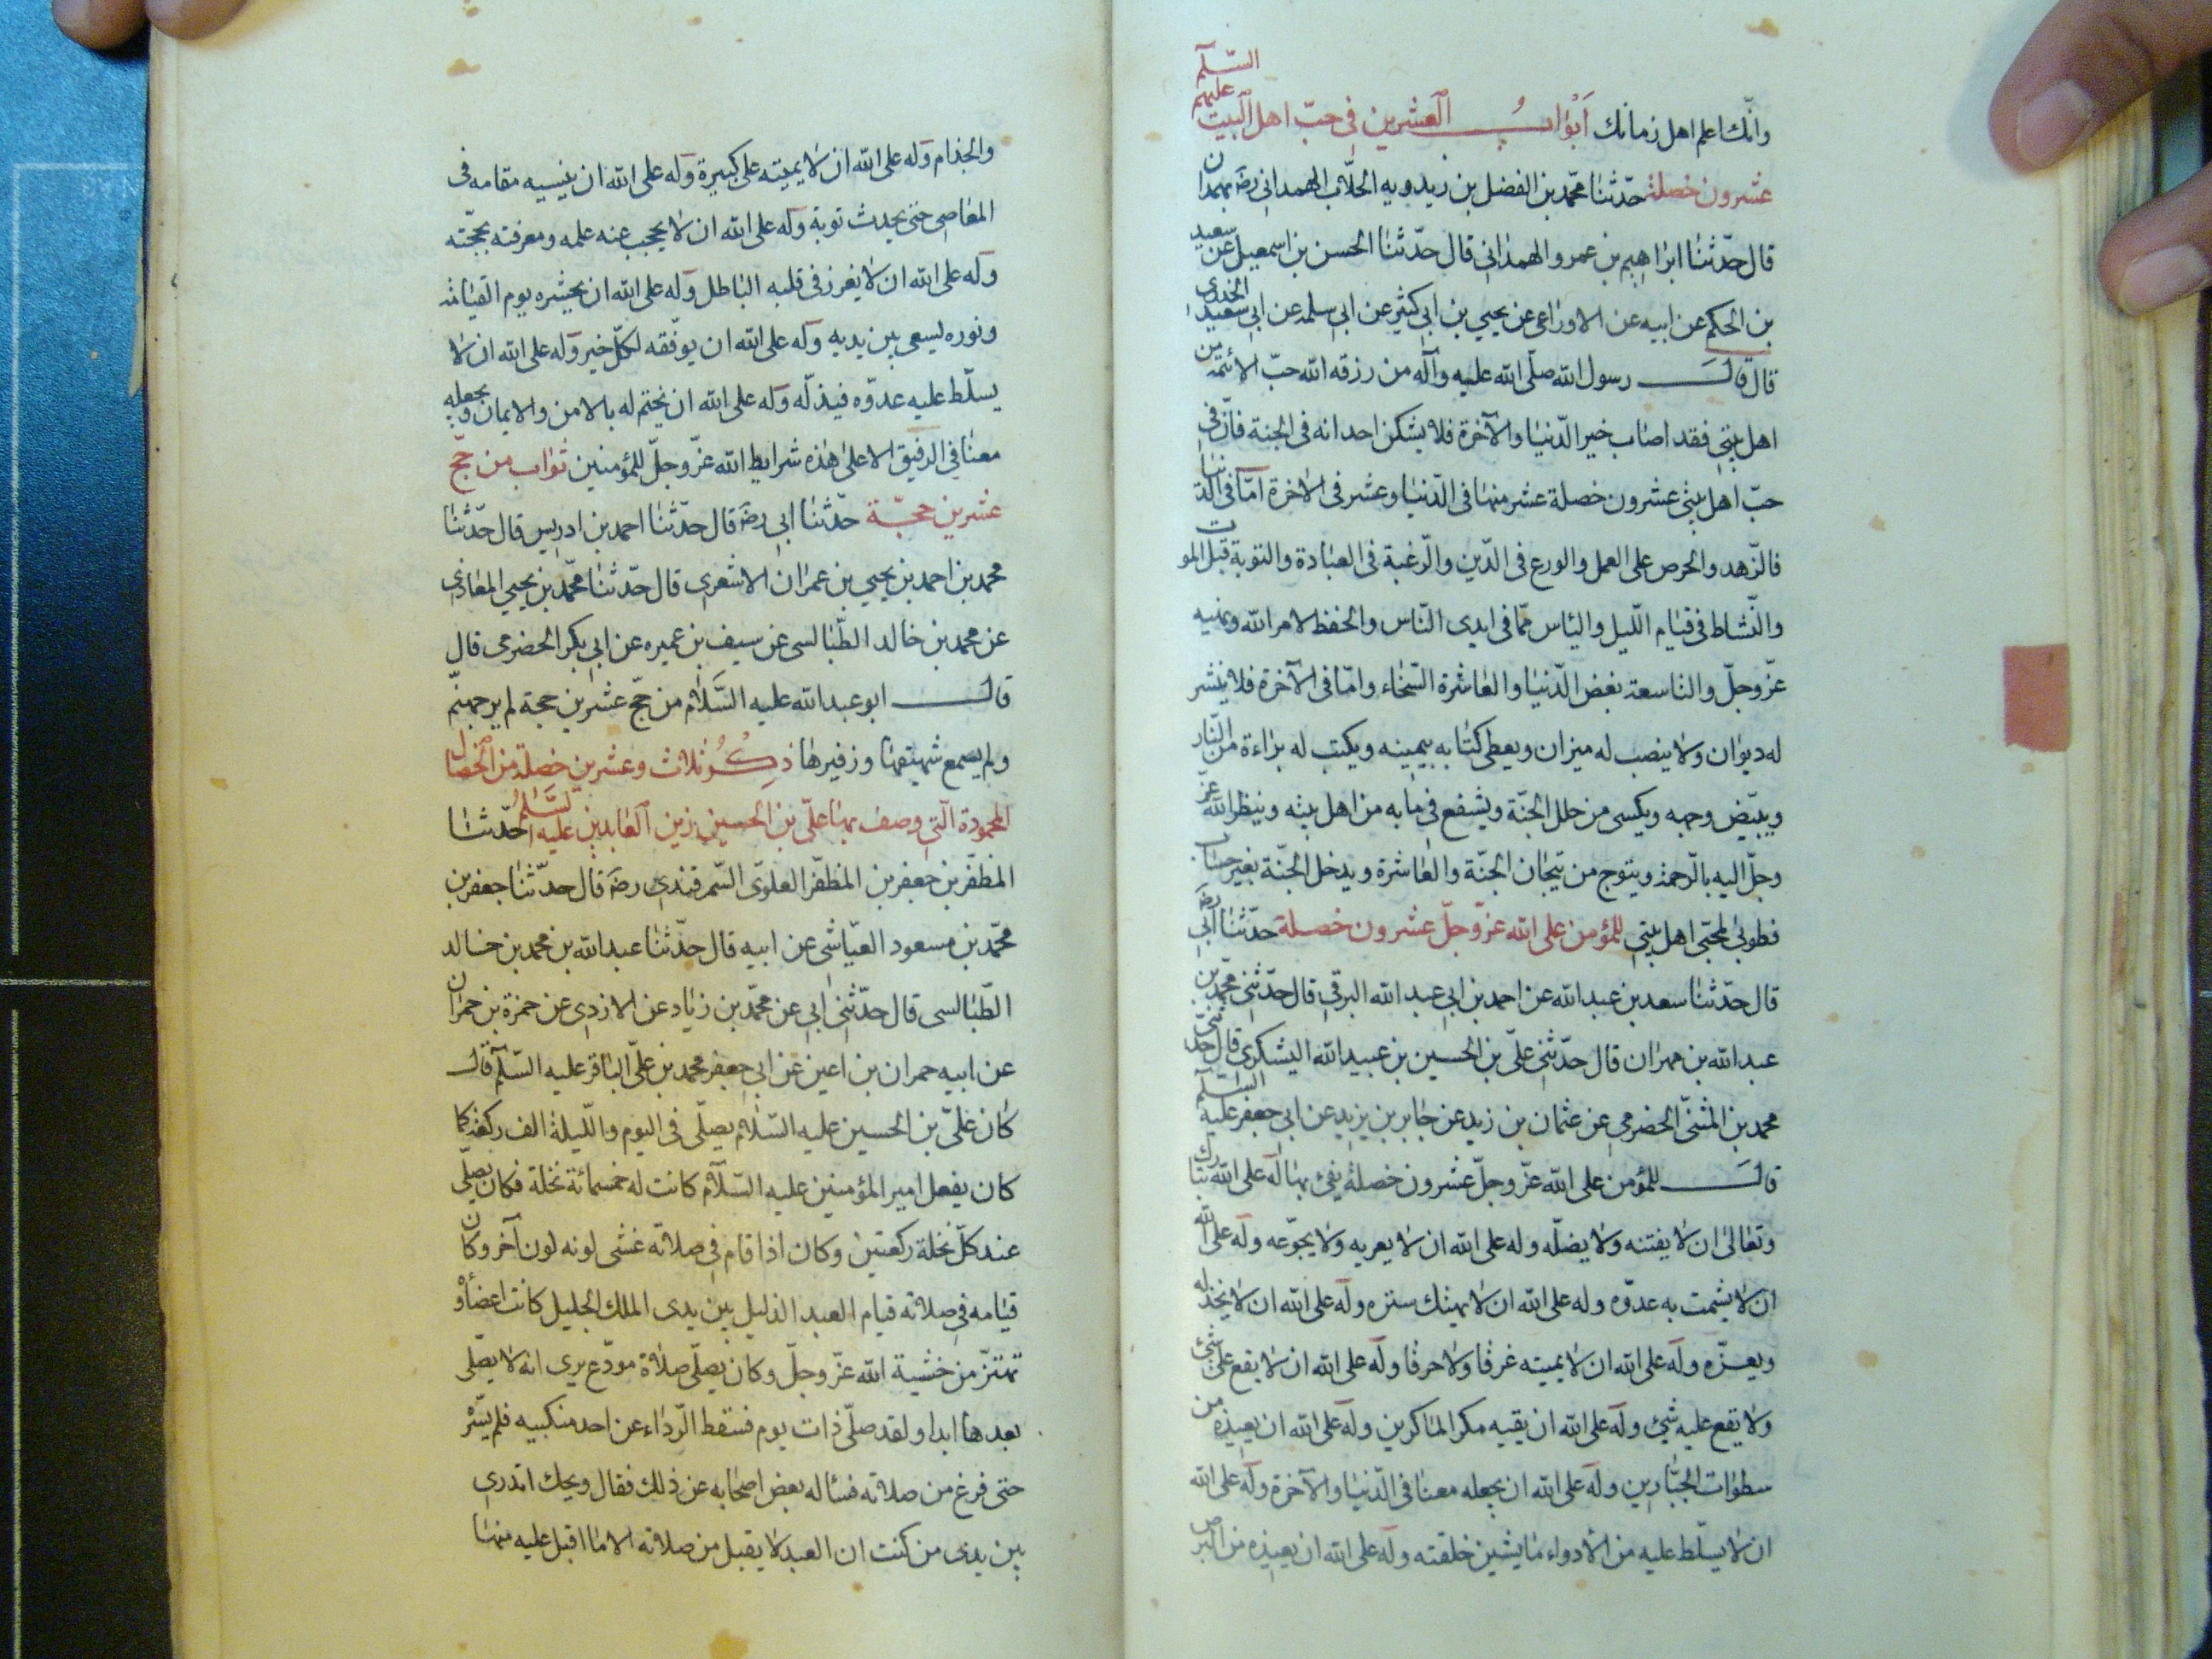 وانّك اعلم اهل زمانك ابواب العشرين فى حبّ اهل البيت عليهم السّلم
عشرون خصلة حدّثنا محمّد بن الفضل بن زيدويه الجلّاب الهمدانى رضه بهمدان
قال حدّثنا ابراهيم بن عمرو الهمدانى قال حدّثنا الحسن بن اسمعيل عن سعيد
بن الحكم عن ابيه عن الاوزاعى عن يحيى بن ابى كثير عن ابى سلمة عن ابى سعيد الخدرى
قال قال رسول الله صلّى الله عليه وآله من رزقه الله حبّ الائمّة من
اهل بيتى فقد اصاب خير الدّنيا والآخرة فلا يشكن احد انه فى الجنة فانّ فى
حبّ اهل بيتى عشرون خصلة عشر منها فى الدّنيا وعشر فى الاخرة امّا فى الدّنيا
فالزّهد والحرص على العمل والورع فى الدّين والرّغبة فى العبادة والتوبة قبل الموت
والنّشاط فى قيام اللّيل والياس ممّا فى ايدى النّاس والحفظ لامر الله ونهيه
عزّ وجلّ والتاسعة بغض الدّنيا والعاشرة السّخاء وامّا فى الآخرة فلا ينشر
له ديوان ولا ينصب له ميزان ويعطى كتابه بيمينه ويكتب له براءة من النّار
ويبيّض وجهه ويكسى من حلل الجنّة ويشفع فى مايه من اهل بيته وينظر الله عزّ
وجلّ اليه بالرّحمة ويتوج من تيجان الجنّة والعاشرة ويدخل الجنّة بغير حساب
فطوبى لمحبّى اهل بيتى للمؤمن على الله عزّ وجلّ عشرون خصلة حدّثنا ابى رضه
قال حدّثنا سعد بن عبدالله عن احمد بن ابى عبد الله البرقى قال حدّثنى محمّد بن
عبدالله بن مهران قال حدّثنى علىّ بن الحسين بن عبيدالله اليشكرى قال حدّثنى
محمد بن المثنّى الحضرمى عن عثمان بن زيد عن جابر بن يزيد عن ابى جعفر عليه السّلم
قال للمؤمن على الله عزّ وجلّ عشرون خصلة يفى بها له على الله تبارك
وتعالى ان لا يفتنه ولا يضلّه وله على الله ان لا يعريه ولا يجوّعه وله على الله
ان لا يشمت به عدوّه وله على الله ان لا يهتك ستره وله على الله ان لا يخذله
ويعزّه وله على الله ان لا يميته غرقا ولا حرقا وله على الله ان لا يقع على شئ
ولا يقع عليه شئ وله على الله ان يقيه مكر الماكرين وله على الله ان يعيذه من
سطوات الجبّارين وله على الله ان يجعله معنا فى الدّنيا والآخرة وله على الله
ان لا يسلّط عليه من الأدواء ما يشين خلقته وله على الله ان يعيذه من البرص
والجذام وله على الله ان لا يميته على كبيرة وله على الله ان ينسيه مقامه فى
المعاصى حتى يحدث توبة وله على الله ان لا يحجب عنه علمه ومعرفته بحجّته
وله على الله ان لا يغرز فى قلبه الباطل وله على الله ان يحشره يوم القيامة
ونوره يسعى بين يديه وله على الله ان يوفّقه لكلّ خير وله على الله ان لا
يسلّط عليه عدوّه فيذلّه وله على الله ان يختم له بالامن والايمان ويجعله
معنا فى الرفيق الاعلى هذه شرايط الله عزّ وجلّ للمؤمنين ثواب من حجّ
عشرين حجّة حدّثنا ابى رضه قال حدّثنا احمد بن ادريس قال حدّثنا
محمد بن احمد بن يحيى بن عمران الاشعرى قال حدّثنا محمّد بن يحيى المعاذى
عن محمد بن خالد الطّيالسى عن سيف بن عميره عن ابى بكر الحضرمى قال
قال ابو عبدالله عليه السّلام من حجّ عشرين حجة لم ير جهنّم
ولم يسمع شهيقها وزفيرها ذكر ثلاث وعشرين خصلة من الخصال
المحمودة الّتى وصف بها علىّ بن الحسين زين العابدين عليه السّلم حدّثنا
المظفّر بن جعفر بن المظفّر العلوىّ السّمرقندى رضه قال حدّثنا جعفر بن
محمّد بن مسعود العيّاشى عن ابيه قال حدّثنا عبدالله بن محمد بن خالد
الطّيالسى قال حدّثنى ابى عن محمّد بن زياد عن الازدى عن حمزة بن حمران
عن ابيه حمران بن اعين عن ابى جعفر محمد بن علىّ الباقر عليه السّلم قال
كان علىّ بن الحسين عليه السّلام يصلّى فى اليوم واللّيلة الف ركعة كما
كان يفعل امير المؤمنين عليه السّلام كانت له خمسمائة نخلة فكان يصلّى
عند كلّ نخلة ركعتين وكان اذا قام فى صلاته غشى لونه لون آخر وكان
قيامه فى صلاته قيام العبد الذليل بين يدى الملك الجليل كانت اعضاؤه
تهتزّ من خشية الله عزّ وجلّ وكان يصلّى صلاة مودّع يرى انه لا يصلّى
بعدها ابدا ولقد صلّى ذات يوم فسقط الرّداء عن احد منكبيه فلم يسّره
حتى فرغ من صلاته فسئاله بعض اصحابه عن ذلك فقال ويحك اتدرى
بين يدى من كنت ان العبد لا يقبل من صلاته الا ما اقبل عليه منها